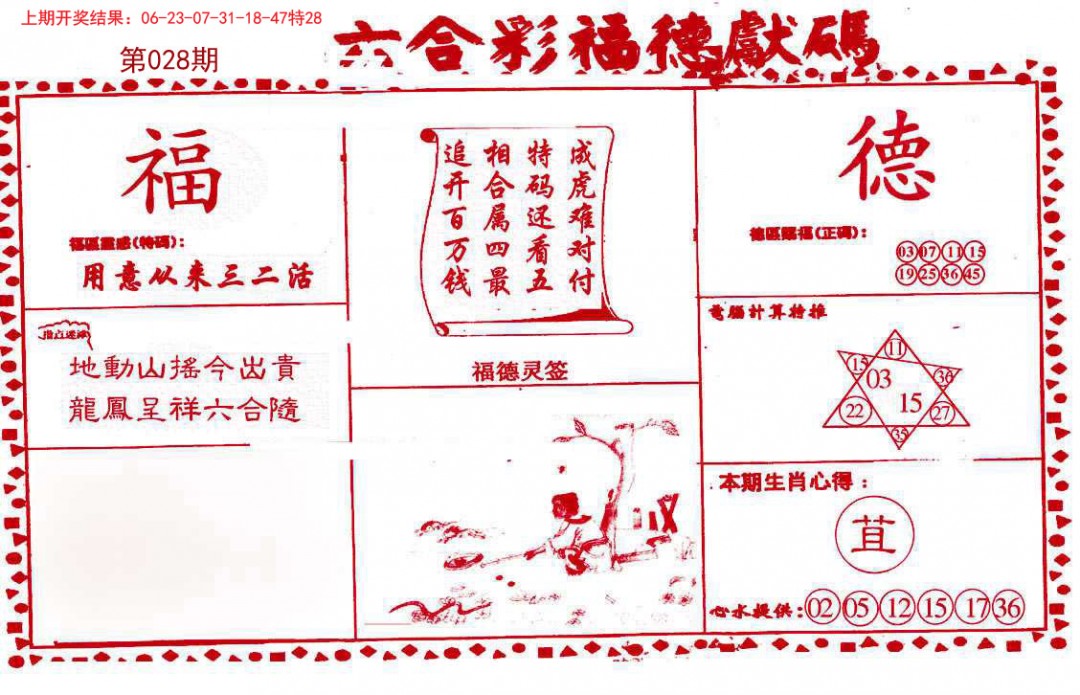 上期开奖结果：06-23-07-31-18-47特28
第028期
六合彩福德獻碼
福
福區靈感(特碼)：
用意从来三二活
成虎难对付
特码还看五
相合属四最
追开百万钱
福德灵签
德
德區賜福(正碼)：
03 07 11 15
19 25 36 45
指点迷津
地動山搖今出貴
龍鳳呈祥六合隨
電腦計算特推
11
15 36
03
22 15 27
35
本期生肖心得：
苴
心水提供：02 05 12 15 17 36